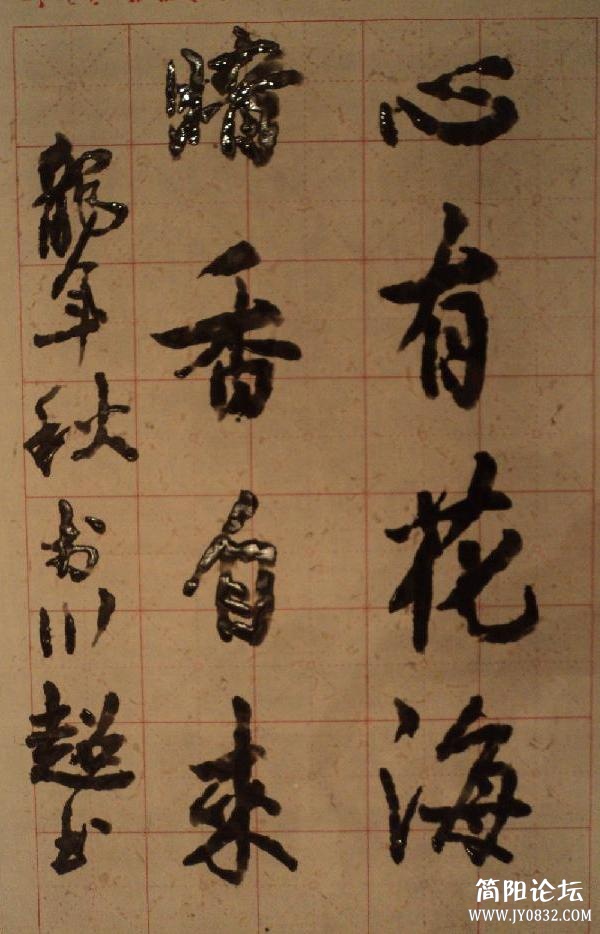 心有花海
暗香自来
龍年秋书川超书
简阳论坛
WWW.JY0832.COM